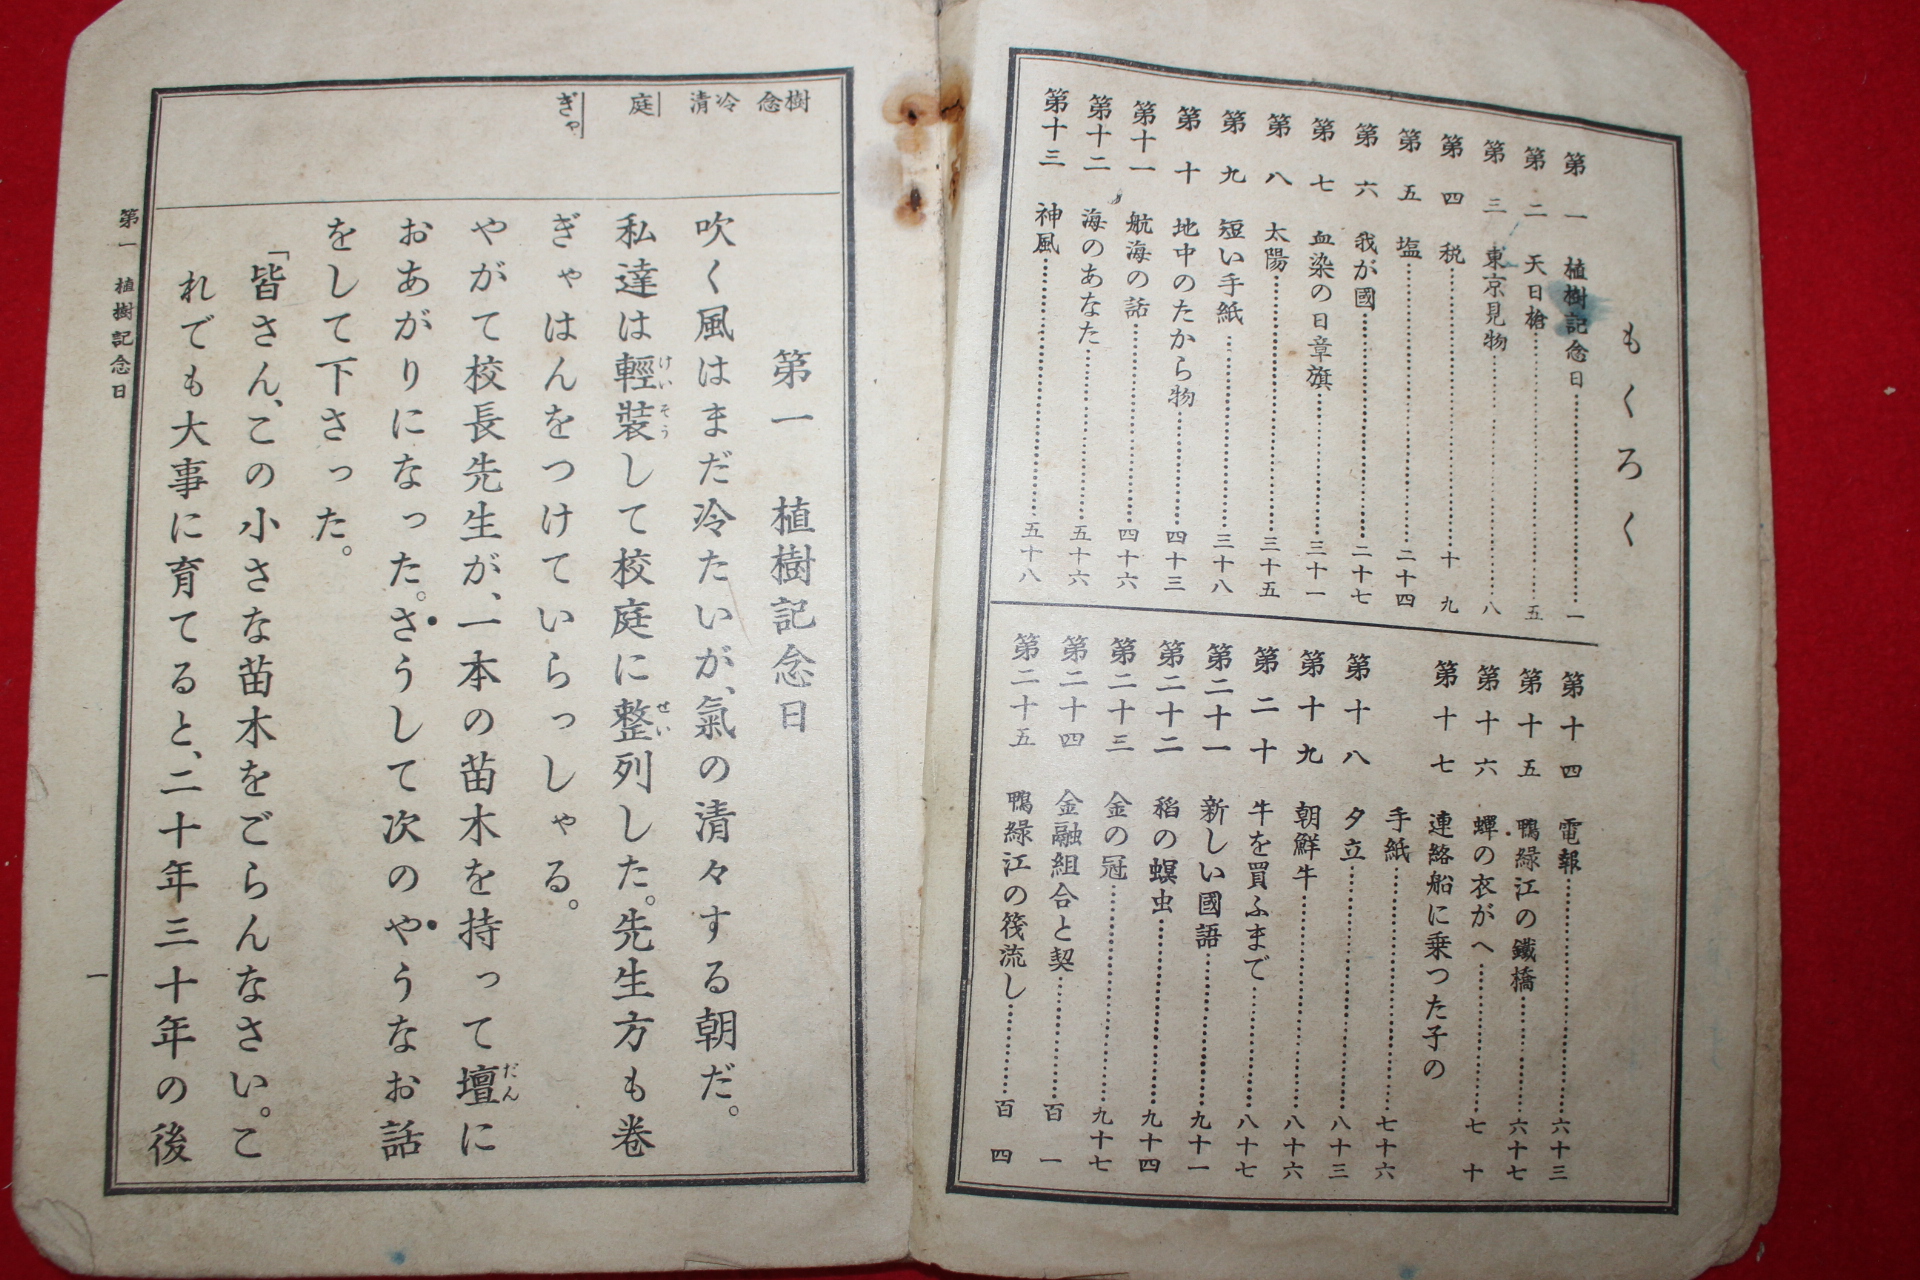 もくろく
第一 植樹記念日…………一
第二 天日槍…………五
第三 東京見物…………八
第四 税…………十九
第五 塩…………二十四
第六 我が國…………二十七
第七 血染の日章旗…………三十一
第八 太陽…………三十五
第九 短い手紙…………三十八
第十 地中のたから物…………四十三
第十一 航海の話…………四十六
第十二 海のあなた…………五十六
第十三 神風…………五十八
第十四 電報…………六十三
第十五 鴨緑江の鐵橋…………六十七
第十六 蟬の衣がへ…………七十
第十七 連絡船に乗つた子の
手紙…………七十六
第十八 夕立…………八十三
第十九 朝鮮牛…………八十六
第二十 牛を買ふまで…………八十七
第二十一 新しい國語…………九十一
第二十二 稻の螟虫…………九十四
第二十三 金の冠…………九十七
第二十四 金融組合と契…………百一
第二十五 鴨緑江の筏流し…………百四
樹念
冷清
庭
ぎゃ
第一 植樹記念日
吹く風はまだ冷たいが、氣の清々する朝だ。
私達は輕裝して校庭に整列した。先生方も卷
けいそう
せい
ぎゃはんをつけていらっしゃる。
やがて校長先生が、一本の苗木を持って壇に
だん
おあがりになった。さうして次のやうなお話
をして下さった。
「皆さん、この小さな苗木をごらんなさい。こ
れでも大事に育てると、二十年三十年の後
第一 植樹記念日
一